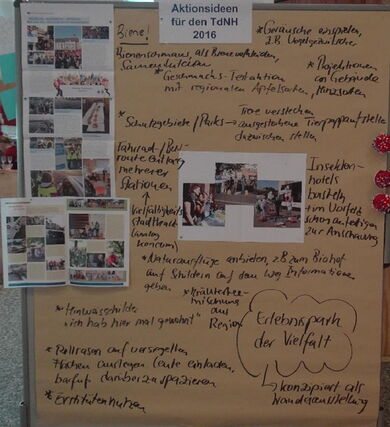 Aktionsideen
für den TdNH
2016
Biene!
Bienenschmaus, als Biene verkleiden,
Samen verteilen
* Geschmacks-Testaktion
mit regionalen Apfelsorten
* Geräusche einspielen,
z.B. Vogelgezwitscher
* Projektionen
an Gebäude
* Schutzgebiete/Parks →
Tiere verstecken
ausgestanzte Tierpappaufsteller
dazwischen stellen
Fahrrad-/
route entlang
mehrerer
Stationen
Vielfältigkeits
Insekten-
hotels
basteln
im Vorfeld
schon anfertigen
zur Anschauung
* Naturausflüge anbieten, z.B. zum Biohof
auf Schildern auf dem Weg Informationen
geben
* Kräuter
mischung
aus
Region
* Hinweisschilder
"ich hab hier mal gewohnt"
Erlebnispark
der Vielfalt
↳ konzipiert als
Wanderausstellung
* Rollrasen auf versiegelten
Flächen auslegen, Leute einladen,
barfuß darüber zu spazieren
* nutzen